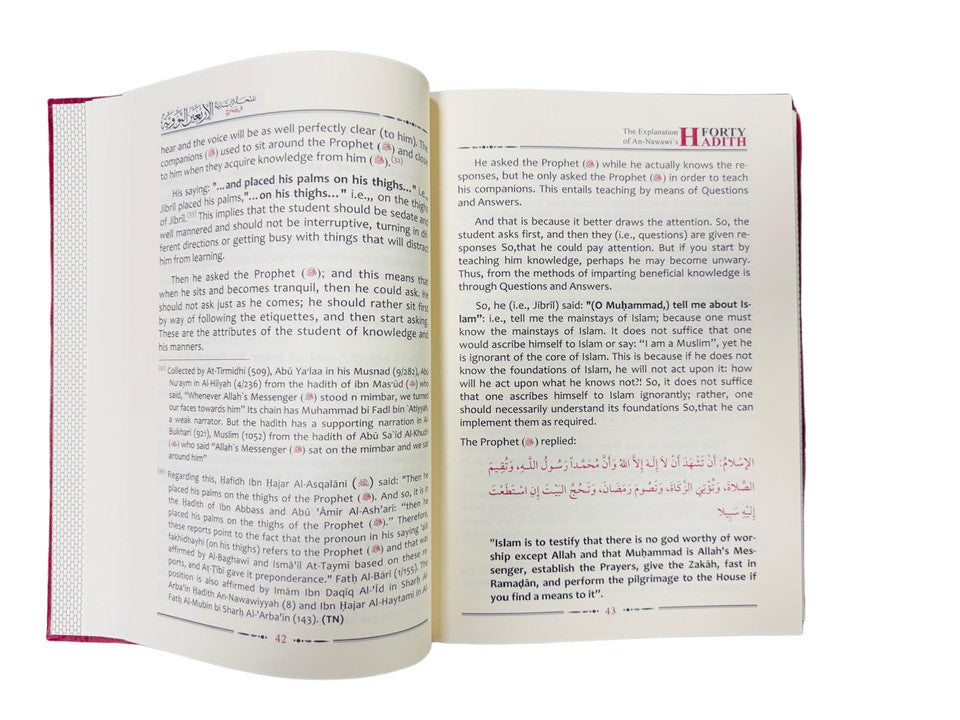 الأربعين النووية
hear and the voice will be as well perfectly clear (to him). The
companions (ﷺ) used to sit around the Prophet (ﷺ) and close
to him when they acquire knowledge from him (ﷺ).(32)
His saying: "...and placed his palms on his thighs..." i.e.,
Jibrīl placed his palms,"...on his thighs..." i.e.,, on the thighs
of Jibrīl.(33) This implies that the student should be sedate and
well mannered and should not be interruptive, turning in dif-
ferent directions or getting busy with things that will distract
him from learning.
Then he asked the Prophet (ﷺ); and this means that
when he sits and becomes tranquil, then he could ask. He
should not ask just as he comes; he should rather sit first
by way of following the etiquettes, and then start asking.
These are the attributes of the student of knowledge and
his manners.
(32) Collected by At-Tirmidhi (509), Abū Ya'laa in his Musnad (9/282), Abū
Nuraym in Al-Hilyah (4/236) from the hadith of ibn Mas'ūd () who
said, "Whenever Allah's Messenger (ﷺ) stood n mimbar, we turned
our faces towards him" Its chain has Muhammad bi Fadl bin 'Atiyyah,
a weak narrator. But the hadith has a supporting narration in Al-
Bukhari (921), Muslim (1052) from the hadith of Abū Sa'id Al-Khudri
() who said "Allah's Messenger (ﷺ) sat on the mimbar and we sat
around him"
(33) Regarding this, Ḥafidh Ibn Ḥajar Al-Asqalāni () said: "Then he
placed his palms on the thighs of the Prophet (ﷺ). And so, it is in
the Ḥadith of Ibn Abbass and Abū 'Āmir Al-Ash'arī: "then he
placed his palms on the thighs of the Prophet (ﷺ)." Therefore,
these reports point to the fact that the pronoun in his saying 'alā
fakhidhayhi (on his thighs) refers to the Prophet (ﷺ) and that was
affirmed by Al-Baghawi and Ismā'il At-Taymi based on these re-
ports, and At-Ṭibi gave it preponderance." Fatḥ Al-Bārī (1/155). The
position is also affirmed by Imām Ibn Daqīq Al-'Īd in Sharḥ Al-
Arba'in Ḥadith An-Nawawiyyah (8) and Ibn Ḥajar Al-Haytami in Al-
Fatḥ Al-Mubin bi Sharḥ Al-'Arba'in (143). (TN)
42
The Explanation
of An-Nawawi's
FORTY
HADITH
He asked the Prophet (ﷺ) while he actually knows the re-
sponses, but he only asked the Prophet (ﷺ) in order to teach
his companions. This entails teaching by means of Questions
and Answers.
And that is because it better draws the attention. So, the
student asks first, and then they (i.e., questions) are given re-
sponses So,that he could pay attention. But if you start by
teaching him knowledge, perhaps he may become unwary.
Thus, from the methods of imparting beneficial knowledge is
through Questions and Answers.
So, he (i.e., Jibrīl) said: "(O Muḥammad,) tell me about Is-
lam": i.e., tell me the mainstays of Islam; because one must
know the mainstays of Islam. It does not suffice that one
would ascribe himself to Islam or say: "I am a Muslim", yet he
is ignorant of the core of Islam. This is because if he does not
know the foundations of Islam, he will not act upon it: how
will he act upon what he knows not?! So, it does not suffice
that one ascribes himself to Islam ignorantly; rather, one
should necessarily understand its foundations So,that he can
implement them as required.
The Prophet (ﷺ) replied:
الإِسْلَامُ: أَنْ تَشْهَدَ أَنْ لَا إِلَهَ إِلاَّ اللهُ وَأَنَّ مُحَمَّداً رَسُولُ اللَّـهِ، وَتُقِيمَ
الصَّلاَةَ، وَتُؤْتِيَ الزَّكَاةَ، وَتَصُومَ رَمَضَانَ، وَتَحُجَّ البَيْتَ إِنِ اسْتَطَعْتَ
إِلَيْهِ سَبِيلا
"Islam is to testify that there is no god worthy of wor-
ship except Allah and that Muḥammad is Allah's Mes-
senger, establish the Prayers, give the Zakāh, fast in
Ramaḍān, and perform the pilgrimage to the House if
you find a means to it".
43